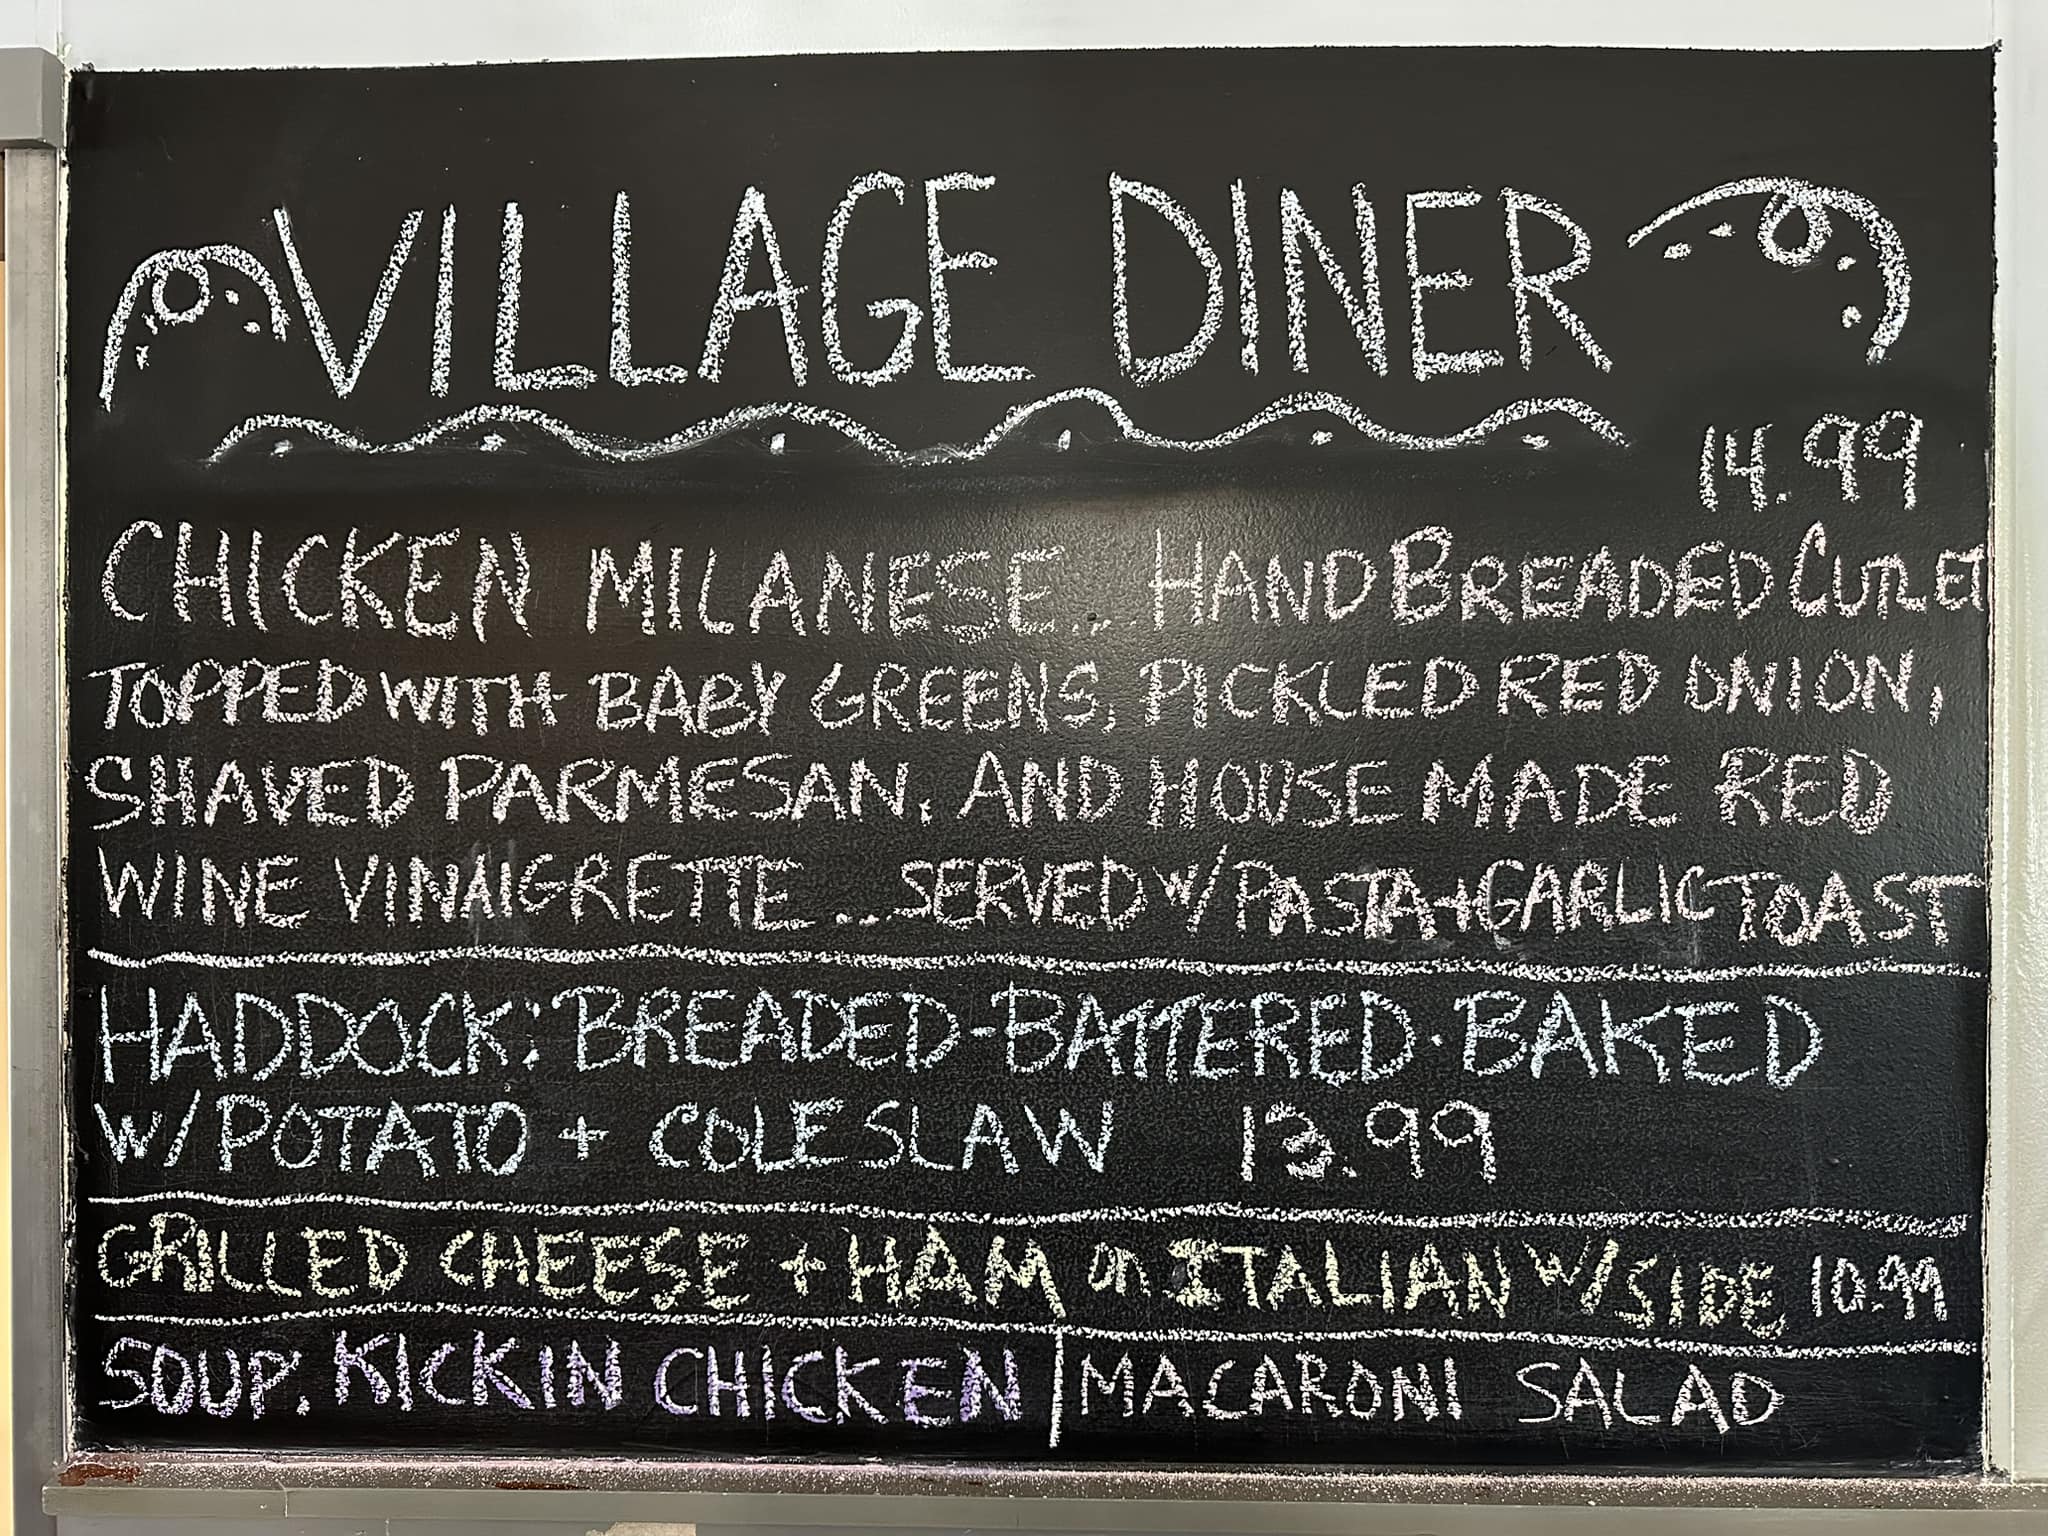 VILLAGE DINER
14.99
CHICKEN MILANESE... HAND BREADED CUTLET
TOPPED WITH BABY GREENS, PICKLED RED ONION,
SHAVED PARMESAN, AND HOUSE MADE RED
WINE VINAIGRETTE ...SERVED W/PASTA+GARLIC TOAST
HADDOCK: BREADED-BATTERED·BAKED
W/POTATO + COLESLAW 13.99
GRILLED CHEESE + HAM on ITALIAN W/SIDE 10.99
SOUP: KICKIN CHICKEN | MACARONI SALAD